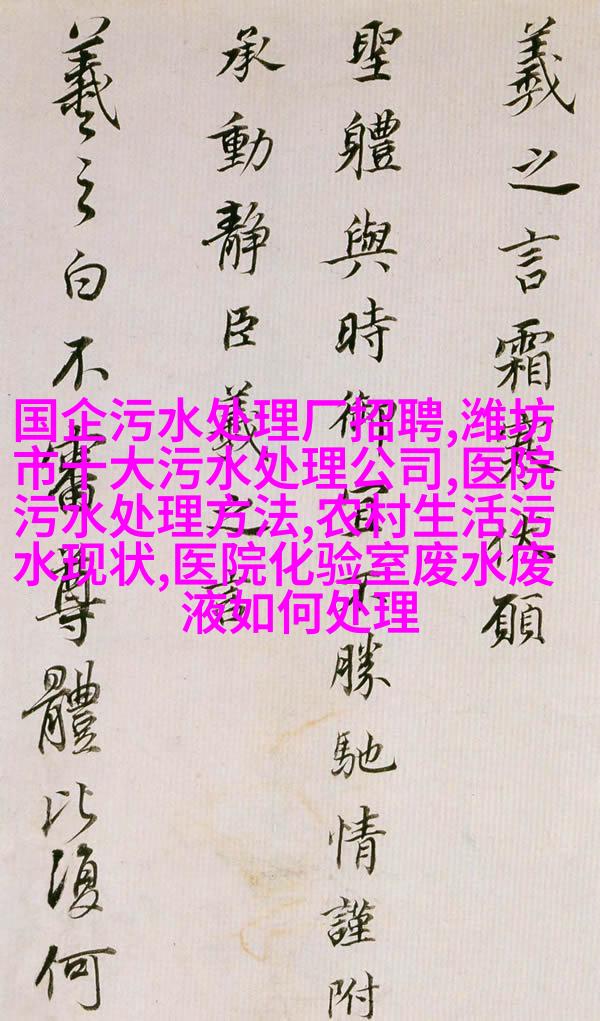 羲之言霜寒伏願
聖體與時御宜不勝馳情謹附
承動靜臣羲之言
羲之白不審尊體比復何
国企污水处理厂招聘,潍坊
市十大污水处理公司,医院
污水处理方法,农村生活污
水现状,医院化验室废水废
液如何处理